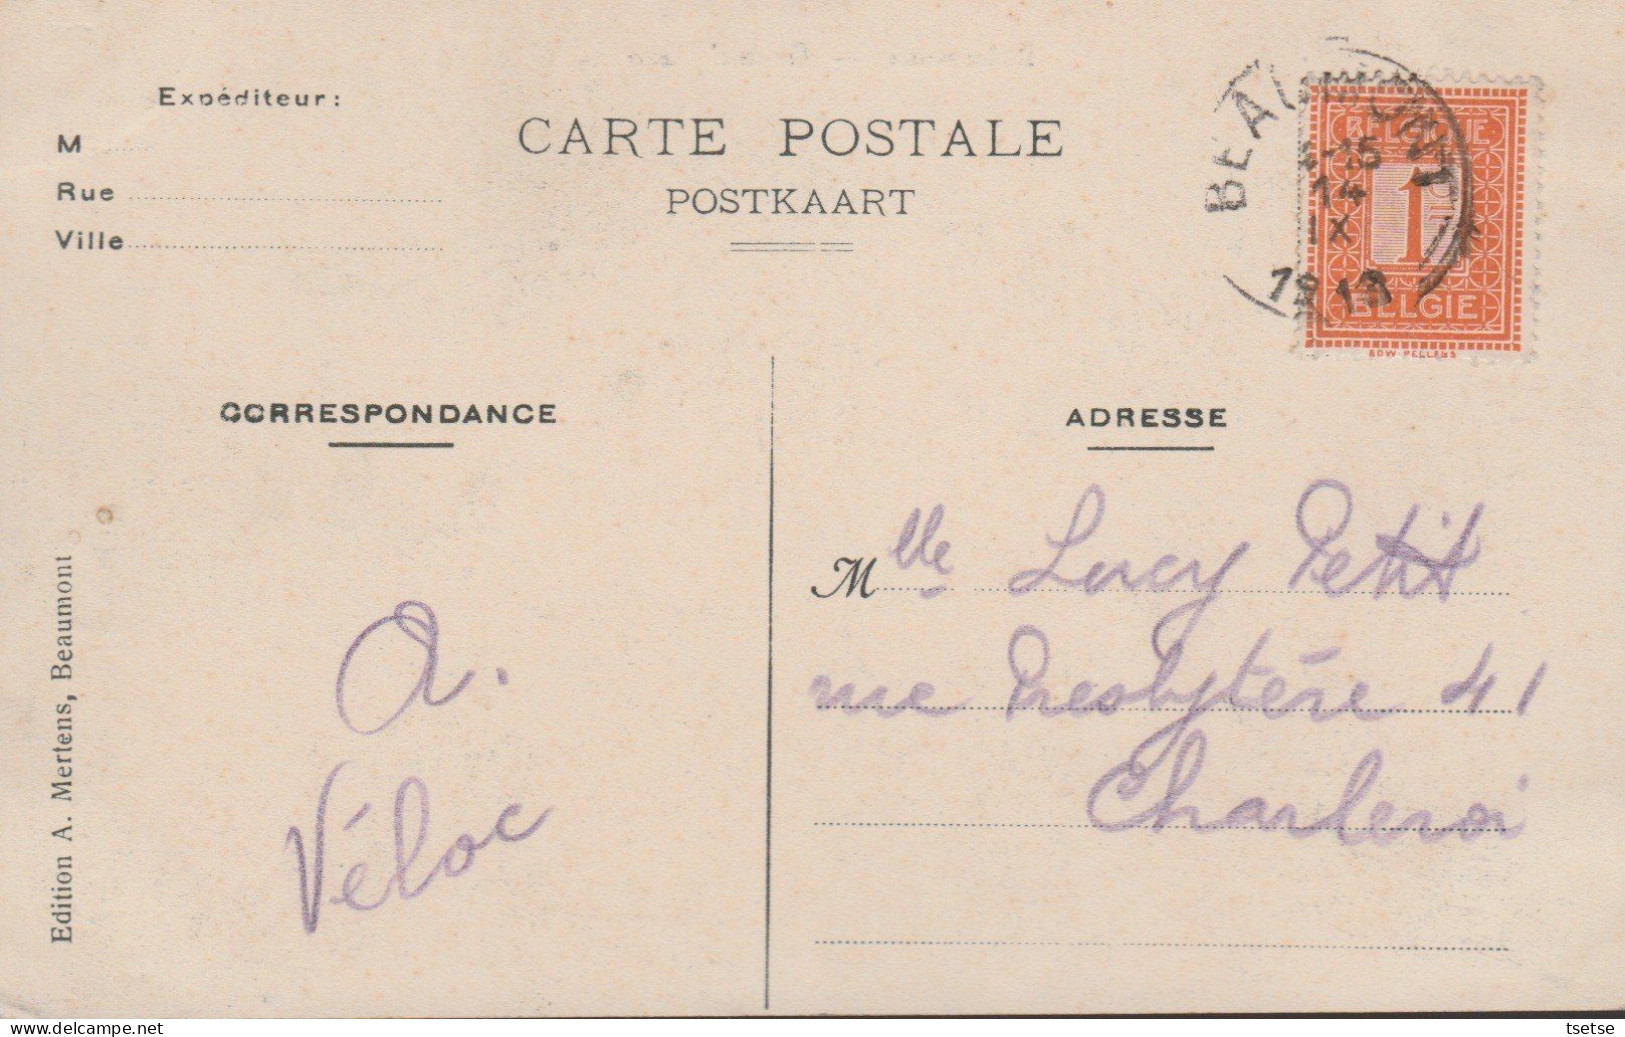 Expéditeur :
M
Rue
Ville
CARTE POSTALE
POSTKAART
BEAUMONT
14
IX
BELGIE
1c
BELGIE
EDW PELLENS
CORRESPONDANCE
ADRESSE
Mlle Lucy Petit
rue Presbytère 41
Charleroi
A.
Véloc
Edition A. Mertens, Beaumont
www.delcampe.net
tsetse